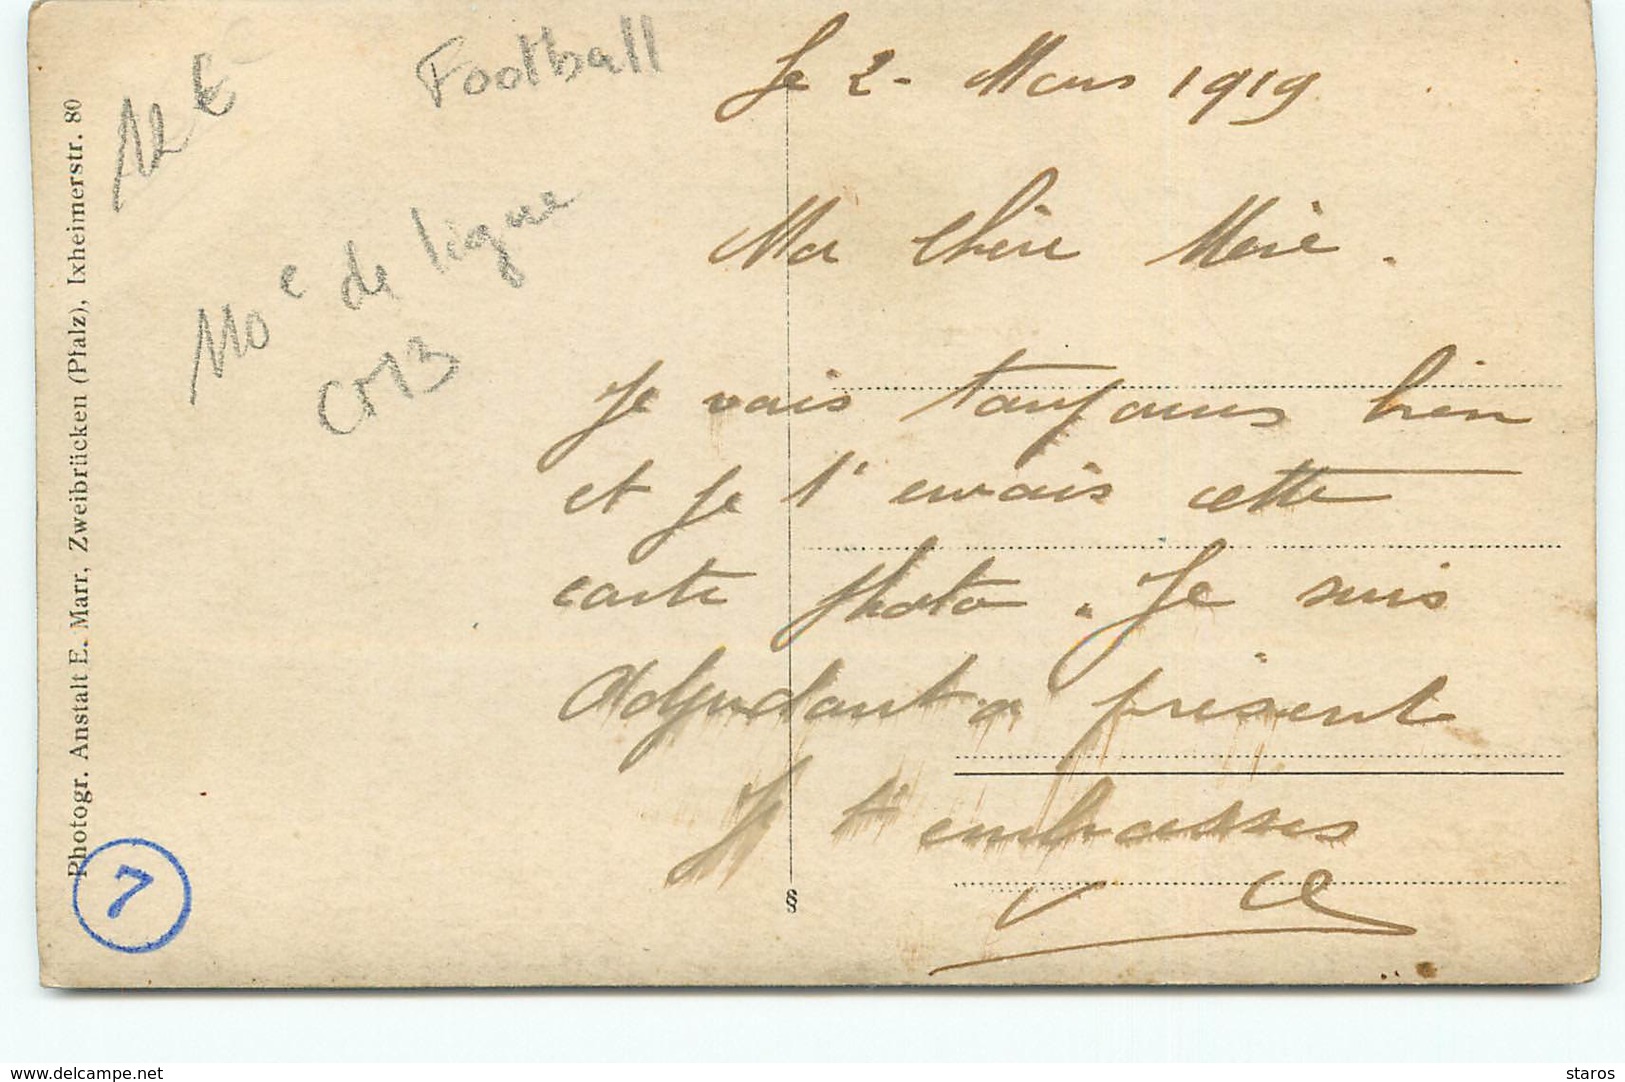 Le 2 - Mars 1919
Ma chère Mère.
Je vais toujours bien
et je t'envais cette
carte photo. Je suis
Adjudant a présent
Je t'embrasses
Football
12 €
110e de ligne
Photogr. Anstalt E. Marr, Zweibrücken (Pfalz), Ixheimerstr. 80
7
§
www.delcampe.net
staros